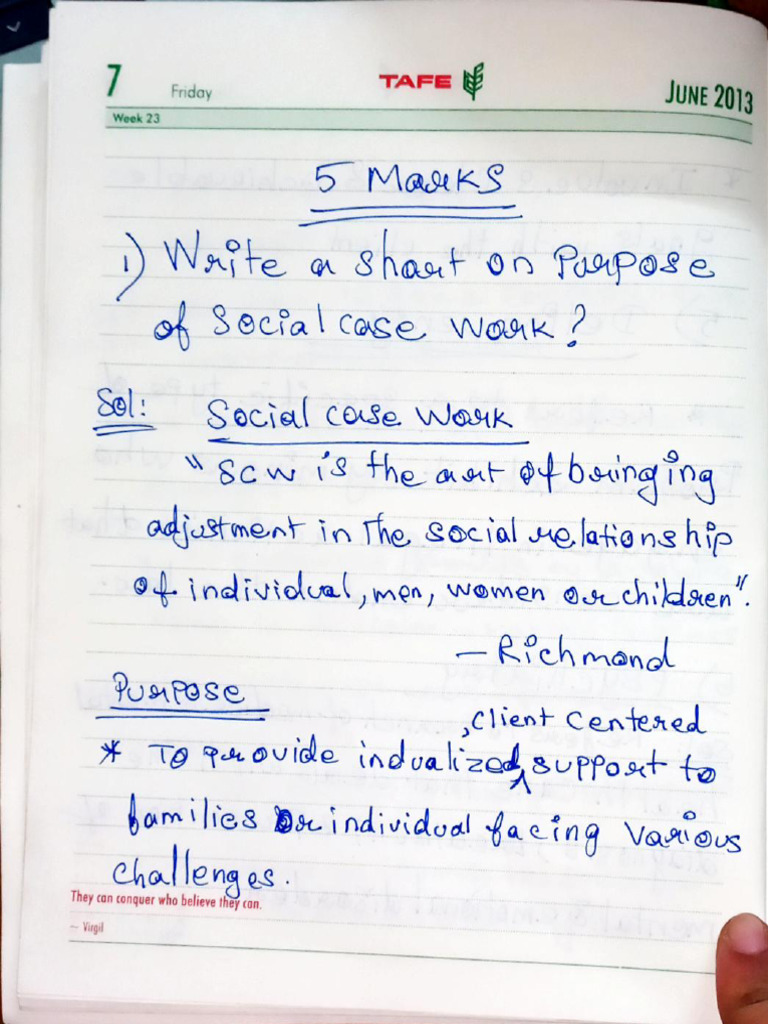 7 Friday TAFE JUNE 2013
Week 23
5 Marks
1) Write a short on Purpose
of Social case work?
Sol: Social case work
"SCW is the art of bringing
adjustment in the social relationship
of individual, men, women or children".
– Richmond
Purpose
, client centered
* To provide indualized ^ support to
families or individual facing various
challenges.
They can conquer who believe they can.
– Virgil